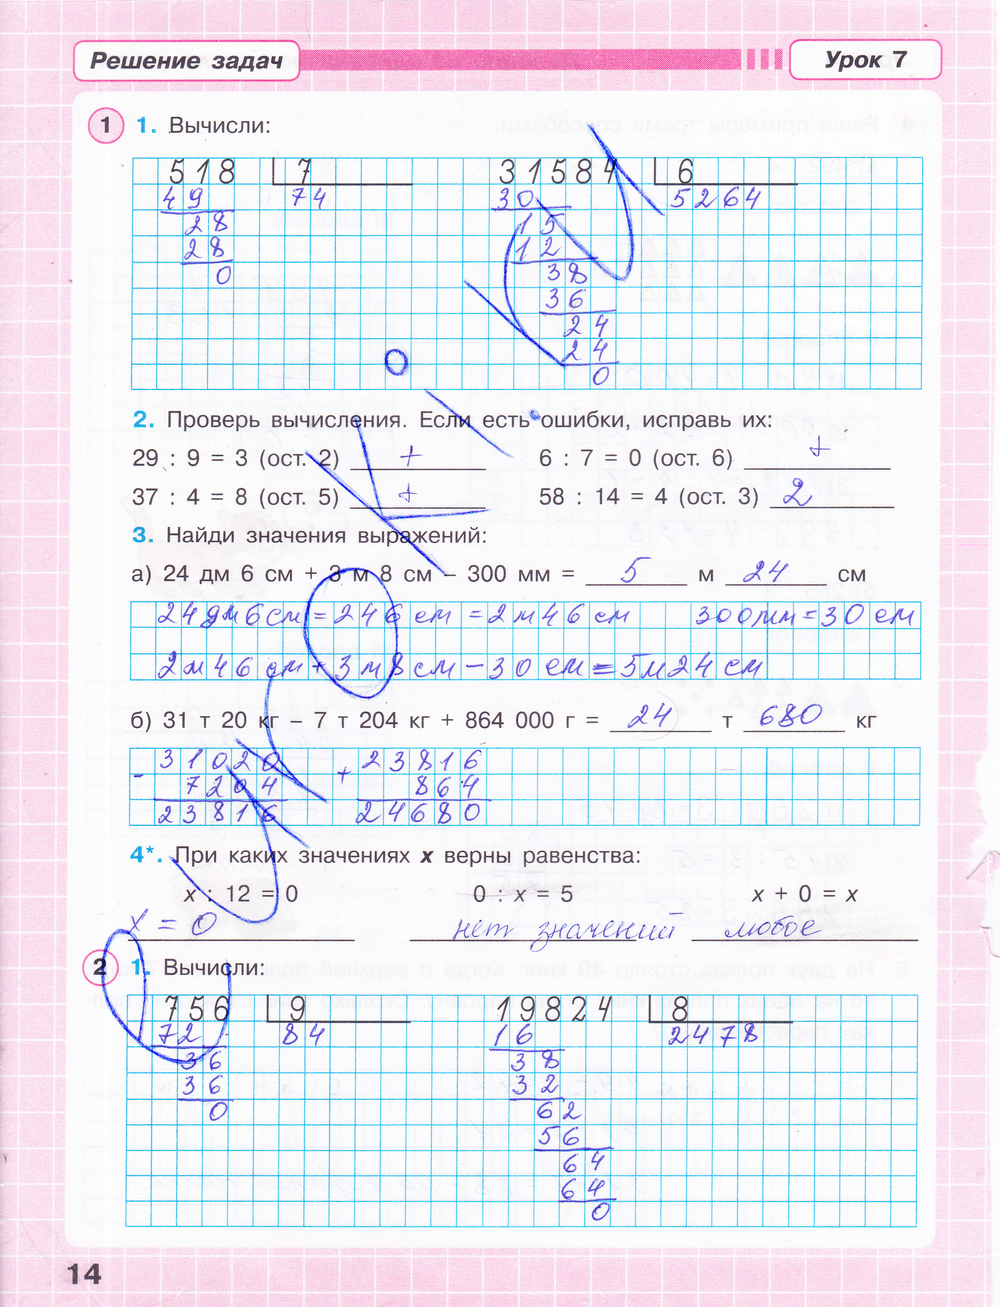 Решение задач
Урок 7
1 1. Вычисли:
518 7
49 74
28
28
0
31584 6
30 5264
15
12
38
36
24
24
0
2. Проверь вычисления. Если есть ошибки, исправь их:
29 : 9 = 3 (ост. 2) + 6 : 7 = 0 (ост. 6) +
37 : 4 = 8 (ост. 5) + 58 : 14 = 4 (ост. 3) 2
3. Найди значения выражений:
а) 24 дм 6 см + 3 м 8 см – 300 мм = 5 м 24 см
24дм6см = 246 см = 2м46 см 300мм = 30 см
2м46 см + 3м8см – 30 см = 5м24 см
б) 31 т 20 кг – 7 т 204 кг + 864 000 г = 24 т 680 кг
- 31020 + 23816
7204 864
23816 24680
4*. При каких значениях x верны равенства:
x : 12 = 0 0 : x = 5 x + 0 = x
x = 0 нет значений любое
2 1. Вычисли:
756 9
72 84
36
36
0
19824 8
16 2478
38
32
62
56
64
64
0
14